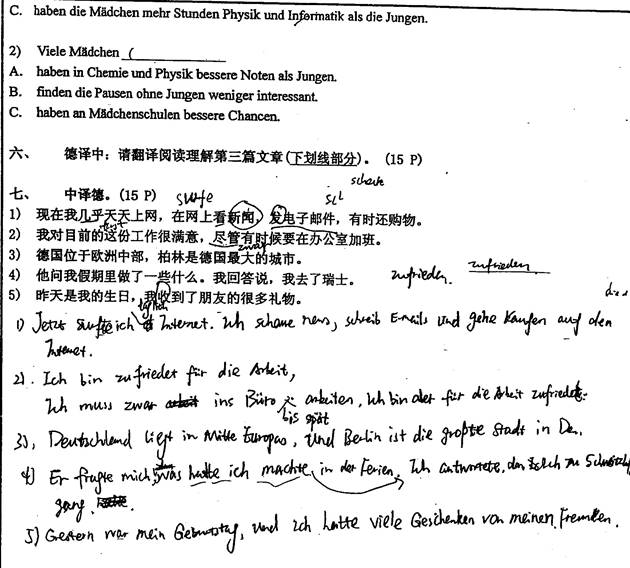 C. haben die Mädchen mehr Stunden Physik und Informatik als die Jungen.
2) Viele Mädchen (
A. haben in Chemie und Physik bessere Noten als Jungen.
B. finden die Pausen ohne Jungen weniger interessant.
C. haben an Mädchenschulen bessere Chancen.
六、 德译中：请翻译阅读理解第三篇文章(下划线部分)。(15 P)
七、 中译德。(15 P) surfe
1) 现在我几乎天天上网，在网上看新闻，发电子邮件，有时还购物。
2) 我对目前的这份工作很满意，尽管有时候要在办公室加班。
zwar
3) 德国位于欧洲中部，柏林是德国最大的城市。
zufrieden. zufrieden
4) 他问我假期里做了一些什么。我回答说，我去了瑞士。
5) 昨天是我的生日，我收到了朋友的很多礼物。
täglich
1) Jetzt surfte ich Internet. Ich schaue news, schreib E-mails und gehe kaufen auf den
Internet.
2). Ich bin zufrieder für die Arbeit,
Ich muss zwar ins Büro arbeiten, Ich bin aber für die Arbeit zufrieden.
bis spät
3), Deutschland liegt in Mitte Europas, und Berlin ist die größte Stadt in De.
4) Er fragte mich, was hatte ich machte in der Ferien. Ich antwortete, ich zu
gang.
5) Gestern war mein Geburtstag, und ich hatte viele Geschenken von meinen Freunden.